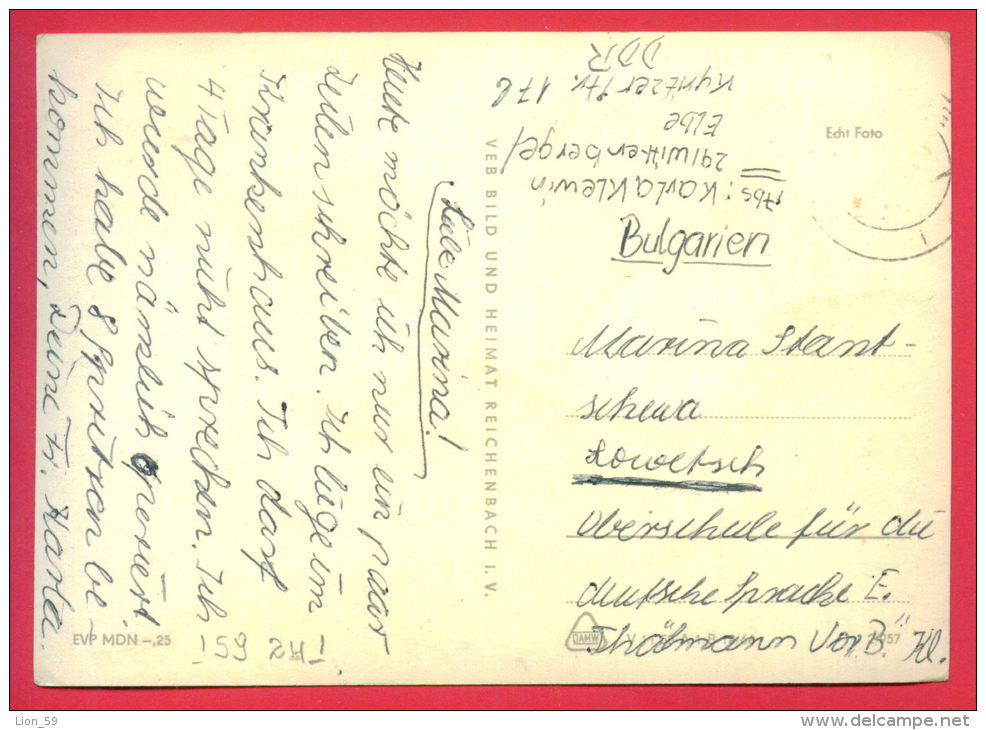 Liebe Marina!
Heute möchte ich nur ein paar
Zeilen schreiben. Ich liege im
Krankenhaus. Ich darf
4 Tage nicht sprechen. Ich
wurde nämlich operiert
Ich habe 8 Spritzen be-
kommen, Deine Fr. Karla.
Abs: Karla Klewin
291 Wittenberge/
Elbe
Kyritzer Str. 176
DDR
VEB BILD UND HEIMAT REICHENBACH I. V.
Echt Foto
Bulgarien
Marina Stant-
schewa
Lowetsch
Oberschule für die
deutsche Sprache E.
Thälmann Vor. B." Kl.
EVP MDN –,25
DAMW
-159 2H1-
Lion_59
www.delcampe.net